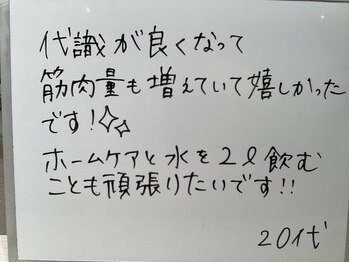 代識が良くなって
筋肉量も増えていて嬉しかった
です!✨
ホームケアと水を2ℓ飲む
ことも頑張りたいです!!
20代